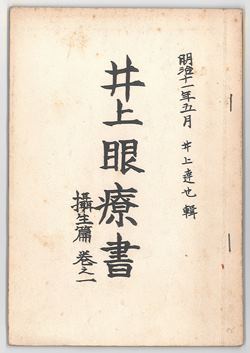 明治十一年五月 井上達也輯
井上眼療書
攝生篇 卷之一